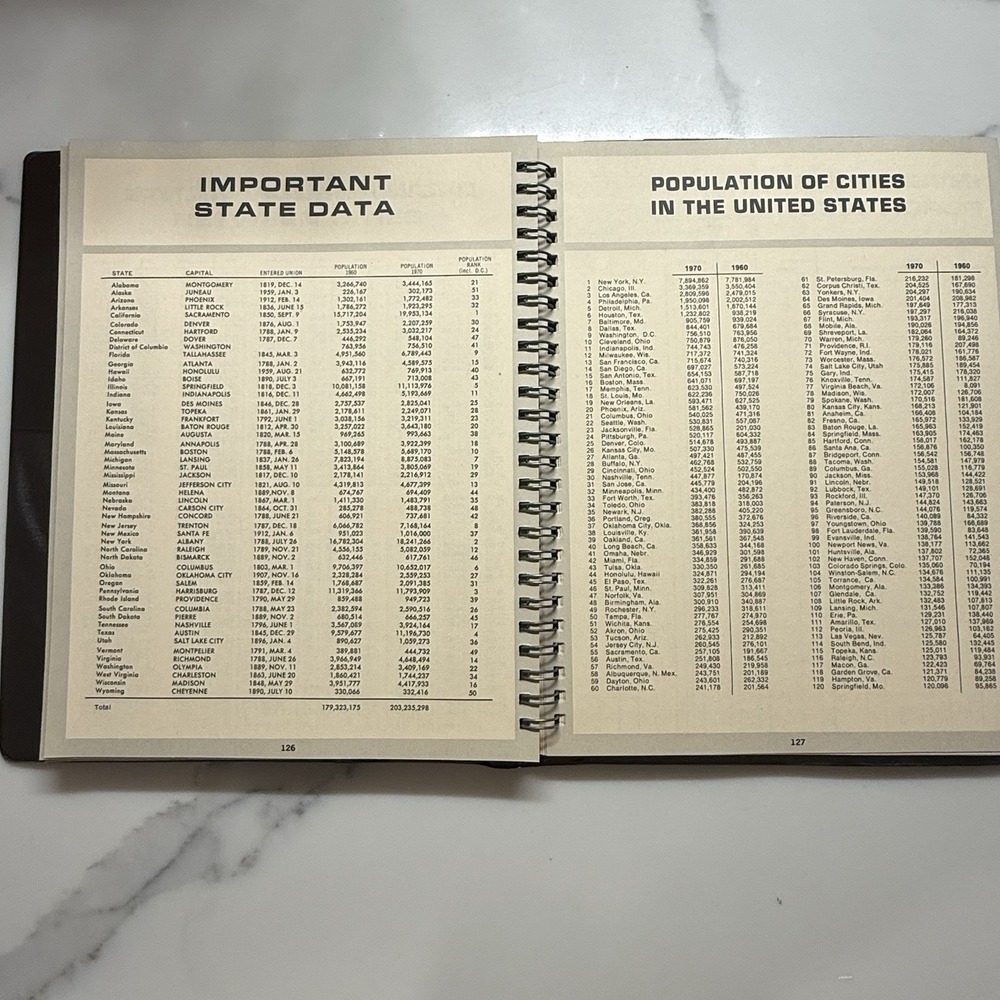 IMPORTANT
STATE DATA
STATE CAPITAL ENTERED UNION POPULATION 1960 POPULATION 1970 POPULATION RANK (incl. D.C.)
Alabama MONTGOMERY 1819, DEC. 14 3,266,740 3,444,165 21
Alaska JUNEAU 1959, JAN. 3 226,167 302,173 51
Arizona PHOENIX 1912, FEB. 14 1,302,161 1,772,482 33
Arkansas LITTLE ROCK 1836, JUNE 15 1,786,272 1,923,295 32
California SACRAMENTO 1850, SEPT. 9 15,717,204 19,953,134 1
Colorado DENVER 1876, AUG. 1 1,753,947 2,207,259 30
Connecticut HARTFORD 1788, JAN. 9 2,535,234 3,032,217 24
Delaware DOVER 1787, DEC. 7 446,292 548,104 47
District of Columbia WASHINGTON 763,956 756,510 41
Florida TALLAHASSEE 1845, MAR. 3 4,951,560 6,789,443 9
Georgia ATLANTA 1788, JAN. 2 3,943,116 4,589,575 15
Hawaii HONOLULU 1959, AUG. 21 632,772 769,913 40
Idaho BOISE 1890, JULY 3 667,191 713,008 43
Illinois SPRINGFIELD 1818, DEC. 3 10,081,158 11,113,976 5
Indiana INDIANAPOLIS 1816, DEC. 11 4,662,498 5,193,669 11
Iowa DES MOINES 1846, DEC. 28 2,757,537 2,825,041 25
Kansas TOPEKA 1861, JAN. 29 2,178,611 2,249,071 28
Kentucky FRANKFORT 1792, JUNE 1 3,038,156 3,219,311 23
Louisiana BATON ROUGE 1812, APR. 30 3,257,022 3,643,180 20
Maine AUGUSTA 1820, MAR. 15 969,265 993,663 38
Maryland ANNAPOLIS 1788, APR. 28 3,100,689 3,922,399 18
Massachusetts BOSTON 1788, FEB. 6 5,148,578 5,689,170 10
Michigan LANSING 1837, JAN. 26 7,823,194 8,875,083 7
Minnesota ST. PAUL 1858, MAY 11 3,413,864 3,805,069 19
Mississippi JACKSON 1817, DEC. 10 2,178,141 2,216,912 29
Missouri JEFFERSON CITY 1821, AUG. 10 4,319,813 4,677,399 13
Montana HELENA 1889, NOV. 8 674,767 694,409 44
Nebraska LINCOLN 1867, MAR. 1 1,411,330 1,483,791 35
Nevada CARSON CITY 1864, OCT. 31 285,278 488,738 48
New Hampshire CONCORD 1788, JUNE 21 606,921 737,681 42
New Jersey TRENTON 1787, DEC. 18 6,066,782 7,168,164 8
New Mexico SANTA FE 1912, JAN. 6 951,023 1,016,000 37
New York ALBANY 1788, JULY 26 16,782,304 18,241,266 2
North Carolina RALEIGH 1789, NOV. 21 4,556,155 5,082,059 12
North Dakota BISMARCK 1889, NOV. 2 632,446 617,761 46
Ohio COLUMBUS 1803, MAR. 1 9,706,397 10,652,017 6
Oklahoma OKLAHOMA CITY 1907, NOV. 16 2,328,284 2,559,253 27
Oregon SALEM 1859, FEB. 14 1,768,687 2,091,385 31
Pennsylvania HARRISBURG 1787, DEC. 12 11,319,366 11,793,909 3
Rhode Island PROVIDENCE 1790, MAY 29 859,488 949,723 39
South Carolina COLUMBIA 1788, MAY 23 2,382,594 2,590,516 26
South Dakota PIERRE 1889, NOV. 2 680,514 666,257 45
Tennessee NASHVILLE 1796, JUNE 1 3,567,089 3,924,164 17
Texas AUSTIN 1845, DEC. 29 9,579,677 11,196,730 4
Utah SALT LAKE CITY 1896, JAN. 4 890,627 1,059,273 36
Vermont MONTPELIER 1791, MAR. 4 389,881 444,732 49
Virginia RICHMOND 1788, JUNE 26 3,966,949 4,648,494 14
Washington OLYMPIA 1889, NOV. 11 2,853,214 3,409,169 22
West Virginia CHARLESTON 1863, JUNE 20 1,860,421 1,744,237 34
Wisconsin MADISON 1848, MAY 29 3,951,777 4,417,933 16
Wyoming CHEYENNE 1890, JULY 10 330,066 332,416 50
Total 179,323,175 203,235,298
126
POPULATION OF CITIES
IN THE UNITED STATES
1970 1960
1 New York, N.Y. 7,894,862 7,781,984
2 Chicago, Ill. 3,369,359 3,550,404
3 Los Angeles, Ca. 2,809,596 2,479,015
4 Philadelphia, Pa. 1,950,098 2,002,512
5 Detroit, Mich. 1,513,601 1,670,144
6 Houston, Tex. 1,232,802 938,219
7 Baltimore, Md. 905,759 939,024
8 Dallas, Tex. 844,401 679,684
9 Washington, D.C. 756,510 763,956
10 Cleveland, Ohio 750,879 876,050
11 Indianapolis, Ind. 744,743 476,258
12 Milwaukee, Wis. 717,372 741,324
13 San Francisco, Ca. 715,674 740,316
14 San Diego, Ca. 697,027 573,224
15 San Antonio, Tex. 654,153 587,718
16 Boston, Mass. 641,071 697,197
17 Memphis, Tenn. 623,530 497,524
18 St. Louis, Mo. 622,236 750,026
19 New Orleans, La. 593,471 627,525
20 Phoenix, Ariz. 581,562 439,170
21 Columbus, Ohio 540,025 471,316
22 Seattle, Wash. 530,831 557,087
23 Jacksonville, Fla. 528,865 201,030
24 Pittsburgh, Pa. 520,117 604,332
25 Denver, Colo. 514,678 493,887
26 Kansas City, Mo. 507,330 475,539
27 Atlanta, Ga. 497,421 487,455
28 Buffalo, N.Y. 462,768 532,759
29 Cincinnati, Ohio 452,524 502,550
30 Nashville, Tenn. 447,877 170,874
31 San Jose, Ca. 445,779 204,196
32 Minneapolis, Minn. 434,400 482,872
33 Fort Worth, Tex. 393,476 356,263
34 Toledo, Ohio 383,818 318,003
35 Newark, N.J. 382,288 405,220
36 Portland, Oreg. 380,555 372,676
37 Oklahoma City, Okla. 368,856 324,253
38 Louisville, Ky. 361,958 390,639
39 Oakland, Ca. 361,561 367,548
40 Long Beach, Ca. 358,633 344,168
41 Omaha, Nebr. 346,929 301,598
42 Miami, Fla. 334,859 291,688
43 Tulsa, Okla. 330,350 261,685
44 Honolulu, Hawaii 324,871 294,194
45 El Paso, Tex. 322,261 276,687
46 St. Paul, Minn. 309,828 313,411
47 Norfolk, Va. 307,951 304,869
48 Birmingham, Ala. 300,910 340,887
49 Rochester, N.Y. 296,233 318,611
50 Tampa, Fla. 277,767 274,970
51 Wichita, Kans. 276,554 254,698
52 Akron, Ohio 275,425 290,351
53 Tucson, Ariz. 262,933 212,892
54 Jersey City, N.J. 260,545 276,101
55 Sacramento, Ca. 257,105 191,667
56 Austin, Tex. 251,808 186,545
57 Richmond, Va. 249,430 219,958
58 Albuquerque, N. Mex. 243,751 201,189
59 Dayton, Ohio 243,601 262,332
60 Charlotte, N.C. 241,178 201,564
1970 1960
61 St. Petersburg, Fla. 216,232 181,298
62 Corpus Christi, Tex. 204,525 167,690
63 Yonkers, N.Y. 204,297 190,634
64 Des Moines, Iowa 201,404 208,982
65 Grand Rapids, Mich. 197,649 177,313
66 Syracuse, N.Y. 197,297 216,038
67 Flint, Mich. 193,317 196,940
68 Mobile, Ala. 190,026 194,856
69 Shreveport, La. 182,064 164,372
70 Warren, Mich. 179,260 89,246
71 Providence, R.I. 179,116 207,498
72 Fort Wayne, Ind. 178,021 161,776
73 Worcester, Mass. 176,572 186,587
74 Salt Lake City, Utah 175,885 189,454
75 Gary, Ind. 175,415 178,320
76 Knoxville, Tenn. 174,587 111,827
77 Virginia Beach, Va. 172,106 8,091
78 Madison, Wis. 172,007 126,706
79 Spokane, Wash. 170,516 181,608
80 Kansas City, Kans. 168,213 121,901
81 Anaheim, Ca. 166,408 104,184
82 Fresno, Ca. 165,972 133,929
83 Baton Rouge, La. 165,963 152,419
84 Springfield, Mass. 163,905 174,463
85 Hartford, Conn. 158,017 162,178
86 Santa Ana, Ca. 156,876 100,350
87 Bridgeport, Conn. 156,542 156,748
88 Tacoma, Wash. 154,581 147,979
89 Columbus, Ga. 155,028 116,779
90 Jackson, Miss. 153,968 144,422
91 Lincoln, Nebr. 149,518 128,521
92 Lubbock, Tex. 149,101 128,691
93 Rockford, Ill. 147,370 126,706
94 Paterson, N.J. 144,824 143,663
95 Greensboro, N.C. 144,076 119,574
96 Riverside, Ca. 140,089 84,332
97 Youngstown, Ohio 139,788 166,689
98 Fort Lauderdale, Fla. 139,590 83,648
99 Evansville, Ind. 138,764 141,543
100 Newport News, Va. 138,177 113,662
101 Huntsville, Ala. 137,802 72,365
102 New Haven, Conn. 137,707 152,048
103 Colorado Springs, Colo. 135,060 70,194
104 Winston-Salem, N.C. 134,676 111,135
105 Torrance, Ca. 134,584 100,991
106 Montgomery, Ala. 133,386 134,393
107 Glendale, Ca. 132,752 119,442
108 Little Rock, Ark. 132,483 107,813
109 Lansing, Mich. 131,546 107,807
110 Erie, Pa. 129,231 138,440
111 Amarillo, Tex. 127,010 137,969
112 Peoria, Ill. 126,963 103,162
113 Las Vegas, Nev. 125,787 64,405
114 South Bend, Ind. 125,580 132,445
115 Topeka, Kans. 125,011 119,484
116 Raleigh, N.C. 123,793 93,931
117 Macon, Ga. 122,423 69,764
118 Garden Grove, Ca. 121,371 84,238
119 Hampton, Va. 120,779 89,258
120 Springfield, Mo. 120,096 95,865
127